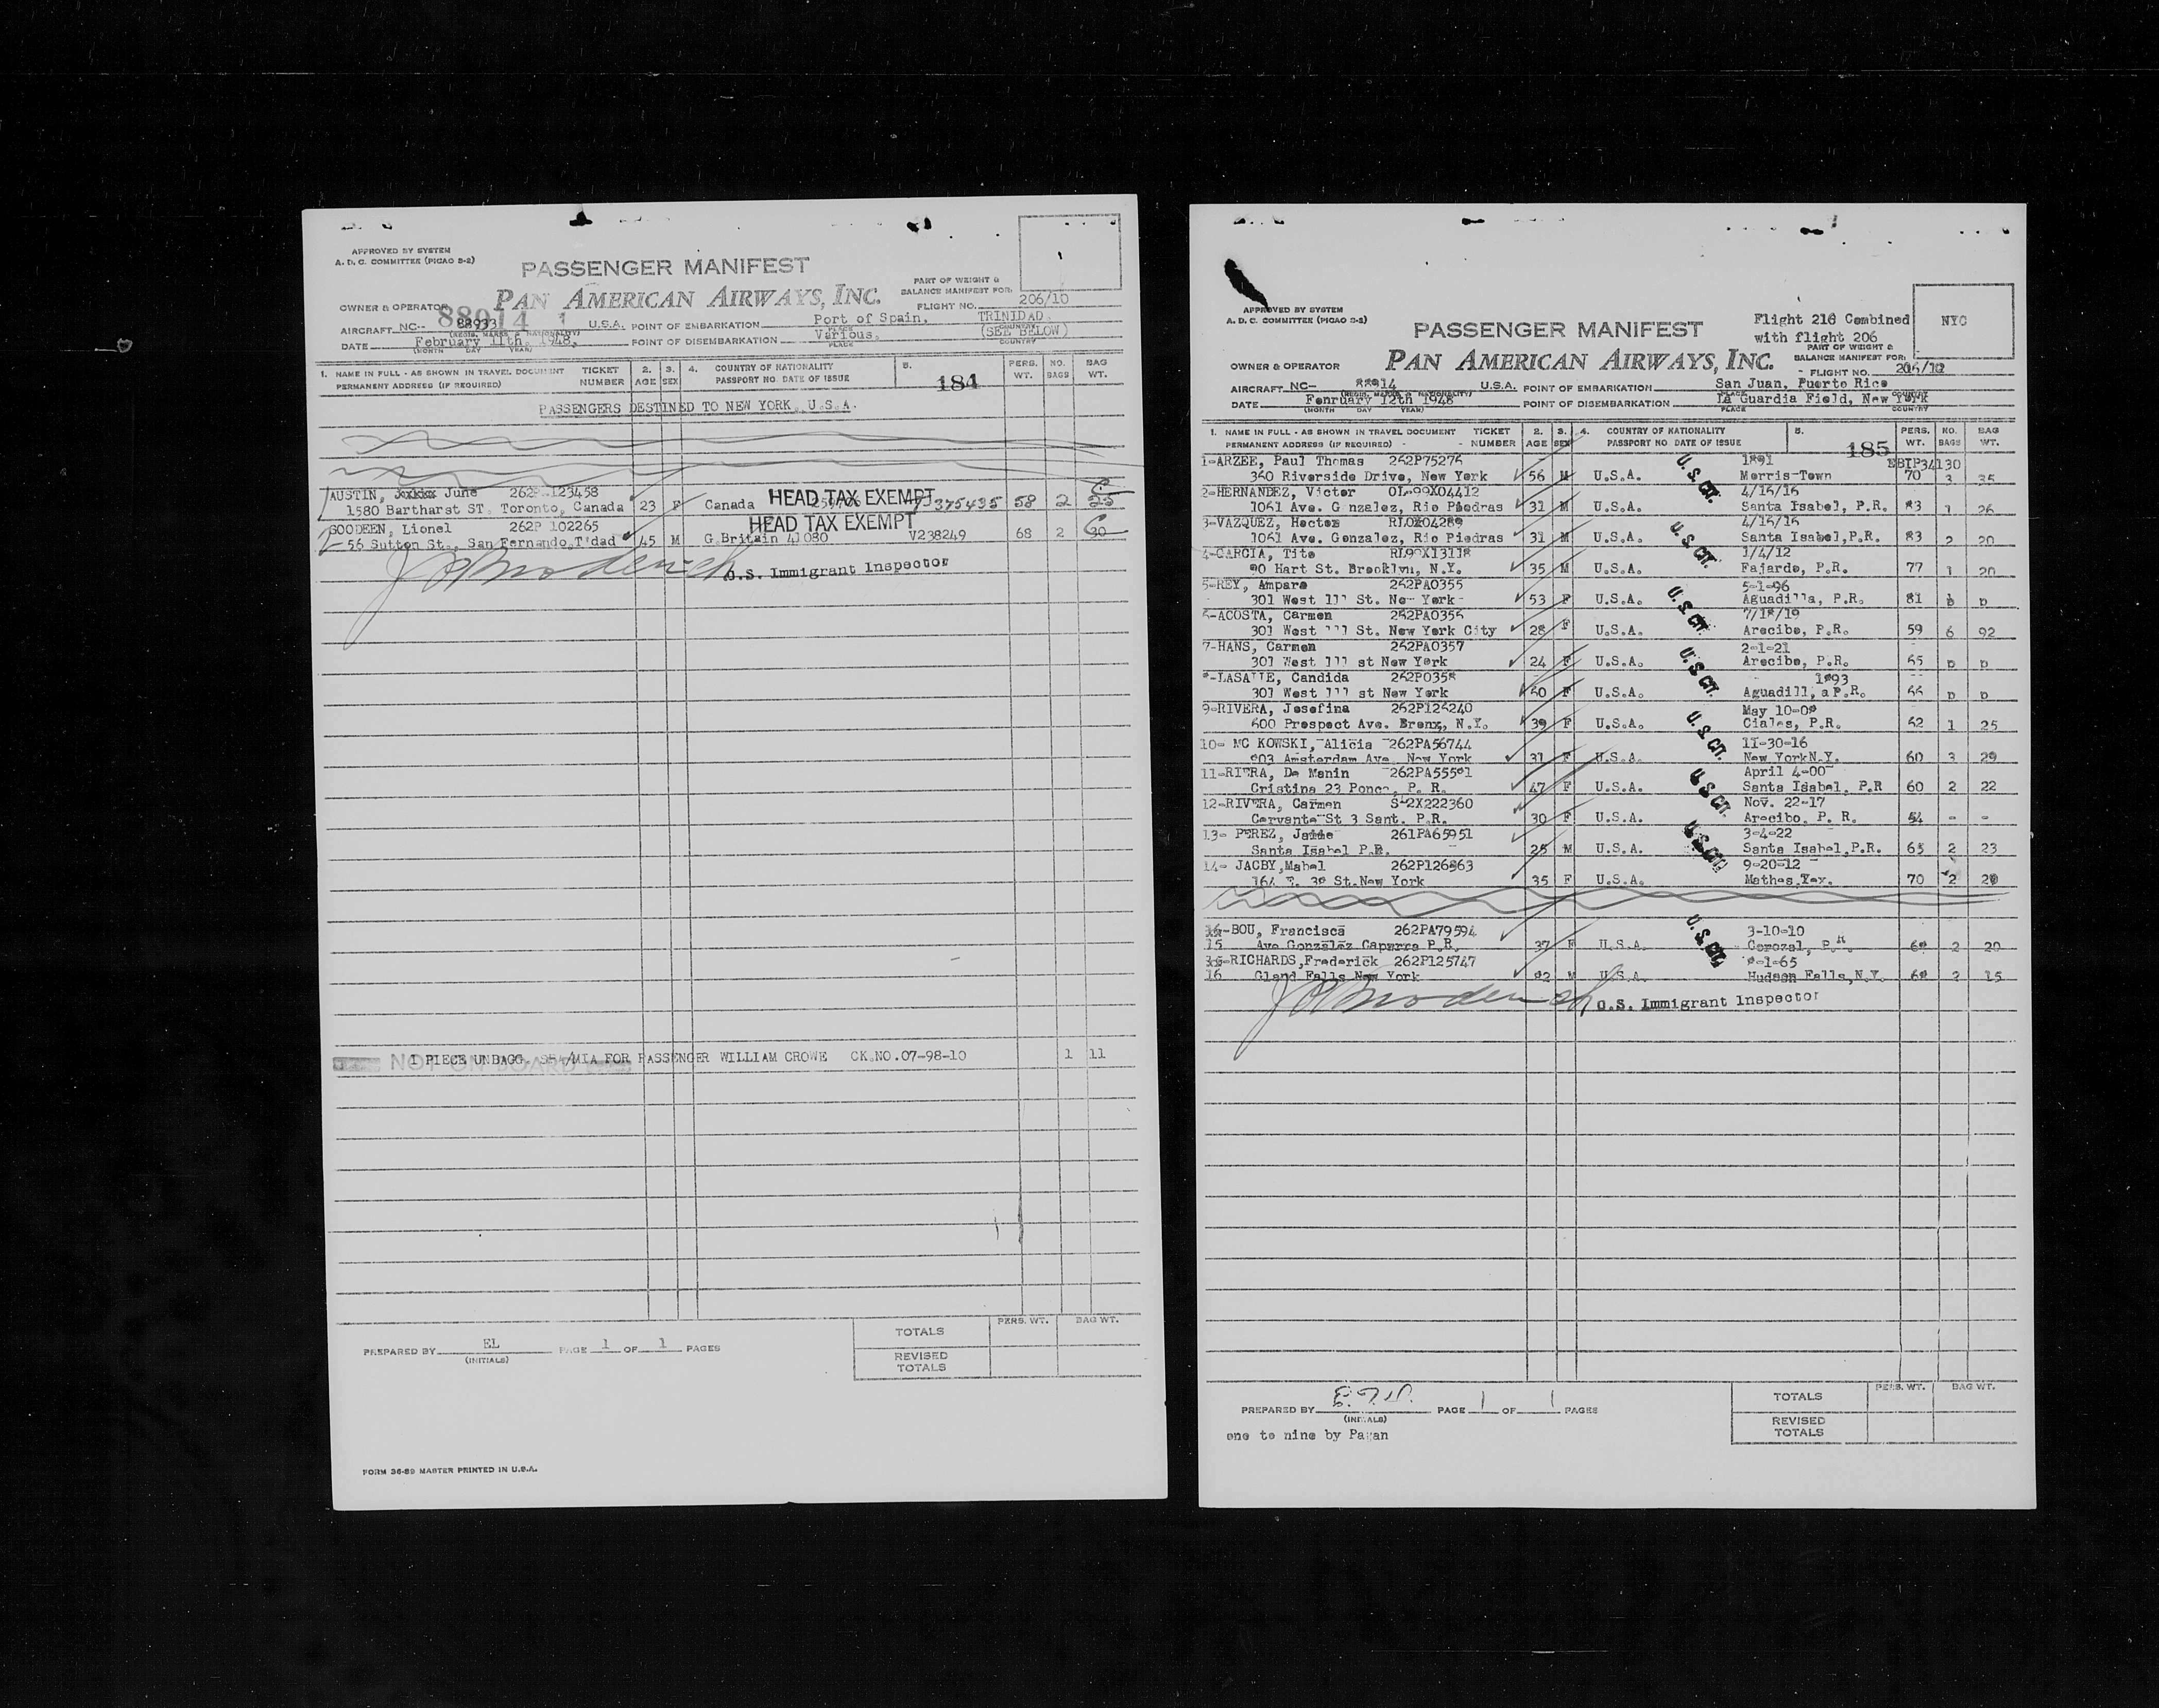 APPROVED BY SYSTEM
A. D. C. COMMITTEE (PICAO S-2)
PASSENGER MANIFEST
PAN AMERICAN AIRWAYS, INC.
PART OF WEIGHT &
BALANCE MANIFEST FOR:
OWNER & OPERATOR
FLIGHT NO. 206/10
88914 1
AIRCRAFT NC-- 88933 U.S.A. POINT OF EMBARKATION Port of Spain, TRINIDAD.
(REGIS. MARKS & NATIONALITY) PLACE COUNTRY
DATE February 11th. 1948. POINT OF DISEMBARKATION Various. (SEE BELOW)
(MONTH DAY YEAR) PLACE COUNTRY
1. NAME IN FULL - AS SHOWN IN TRAVEL DOCUMENT TICKET 2. 3. 4. COUNTRY OF NATIONALITY 5. PERS. NO. BAG
PERMANENT ADDRESS (IF REQUIRED) NUMBER AGE SEX PASSPORT NO. DATE OF ISSUE 184 WT. BAGS WT.
PASSENGERS DESTINED TO NEW YORK, U.S.A.
AUSTIN, June 262P 123458 HEAD TAX EXEMPT
1580 Bartharst ST. Toronto, Canada 23 F Canada 375435 58 2 25
GOODEEN, Lionel 262P 102265 HEAD TAX EXEMPT
56 Sutton St., San Fernando, T'dad 45 M G.Britain 41080 V238249 68 2 30
U.S. Immigrant Inspector
1 PIECE UNBAGG. 954/MIA FOR PASSENGER WILLIAM CROWE CK.NO.07-98-10 1 11
NOT ON BOARD
PERS. WT. BAG WT.
TOTALS
PREPARED BY EL PAGE 1 OF 1 PAGES
(INITIALS)
REVISED
TOTALS
FORM 36-89 MASTER PRINTED IN U.S.A.
APPROVED BY SYSTEM
A. D. C. COMMITTEE (PICAO S-2)
PASSENGER MANIFEST
Flight 216 Combined
with flight 206
NYC
PAN AMERICAN AIRWAYS, INC.
PART OF WEIGHT &
BALANCE MANIFEST FOR:
OWNER & OPERATOR
FLIGHT NO.
AIRCRAFT NC- 88914 U.S.A. POINT OF EMBARKATION San Juan, Puerto Rico
(REGIS. MARKS & NATIONALITY) PLACE COUNTRY
DATE Fenruary 12th 1948 POINT OF DISEMBARKATION La Guardia Field, New York
(MONTH DAY YEAR) PLACE COUNTRY
1. NAME IN FULL - AS SHOWN IN TRAVEL DOCUMENT TICKET 2. 3. 4. COUNTRY OF NATIONALITY 5. PERS. NO. BAG
PERMANENT ADDRESS (IF REQUIRED) NUMBER AGE SEX PASSPORT NO. DATE OF ISSUE 185 WT. BAGS WT.
1-ARZEE, Paul Thomas 262P75276 1891 EBTP34130
360 Riverside Drive, New York 56 M U.S.A. U. S. CIT. Morris-Town 70 3 35
2-HERNANDEZ, Victor OL-99X04412 4/16/16
1061 Ave. G nzalez, Rio Piedras 31 M U.S.A. Santa Isabel, P.R. 83 1 26
3-VAZQUEZ, Hector RL0X04289 4/16/16
1061 Ave. Gonzalez, Rio Piedras 31 M U.S.A. U. S. CIT. Santa Isabel,P.R. 83 2 20
4-GARCIA, Tito RL99X13118 1/4/12
90 Hart St. Brooklyn, N.Y. 35 M U.S.A. Fajardo, P.R. 77 1 20
5-REY, Ampara 262PA0355 5-1-96
301 West 111 St. New York 53 F U.S.A. U. S. CIT. Aguadilla, P.R. 81 p p
6-ACOSTA, Carmen 262PA0356 7/18/19
301 West 111 St. New York City 28 F U.S.A. Arecibo, P.R. 59 6 92
7-HANS, Carmen 262PA0357 2-1-21
301 West 111 st New York 24 F U.S.A. U. S. CIT. Arecibo, P.R. 65 p p
8-LASALLE, Candida 262P0358 1893
301 West 111 st New York 50 F U.S.A. Aguadill, a P.R. 66 p p
9-RIVERA, Josefina 262P126240 May 10-08
600 Prospect Ave. Bronx, N.Y. 39 F U.S.A. U. S. CIT. Ciales, P.R. 62 1 25
10- MC KOWSKI, Alicia 262PA56744 11-30-16
903 Amsterdam Ave. New York 31 F U.S.A. New YorkN.Y. 60 3 29
11-RIERA, De Manin 262PA55501 April 4-00
Cristina 23 Ponce, P. R. 47 F U.S.A. U. S. CIT. Santa Isabel, P.R 60 2 22
12-RIVERA, Carmen S-2X222360 Nov. 22-17
Cervante St 3 Sant. P.R. 30 F U.S.A. Arecibo, P. R. 54 - -
13- PEREZ, Jaime 261PA65951 3-4-22
Santa Isabel P.R. 25 M U.S.A. U. S. CIT. Santa Isabel,P.R. 65 2 23
14- JACBY,Mabel 262P126863 9-20-12
164 E. 38 St.New York 35 F U.S.A. Mathes.Tex. 70 2 20
BOU, Francisca 262PA79594 3-10-10
15 Ave Gonzalez Caparra P.R. 37 F U.S.A. U. S. CIT. Corozal, P.R. 68 2 20
RICHARDS,Frederick 262P125747 8-1-65
16 Gland Falls New York 82 M U.S.A. Hudson Falls,N.Y. 68 2 15
U.S. Immigrant Inspector
PERS. WT. BAG WT.
TOTALS
PREPARED BY PAGE 1 OF 1 PAGES
(INITIALS)
REVISED
TOTALS
one to nine by Pagan